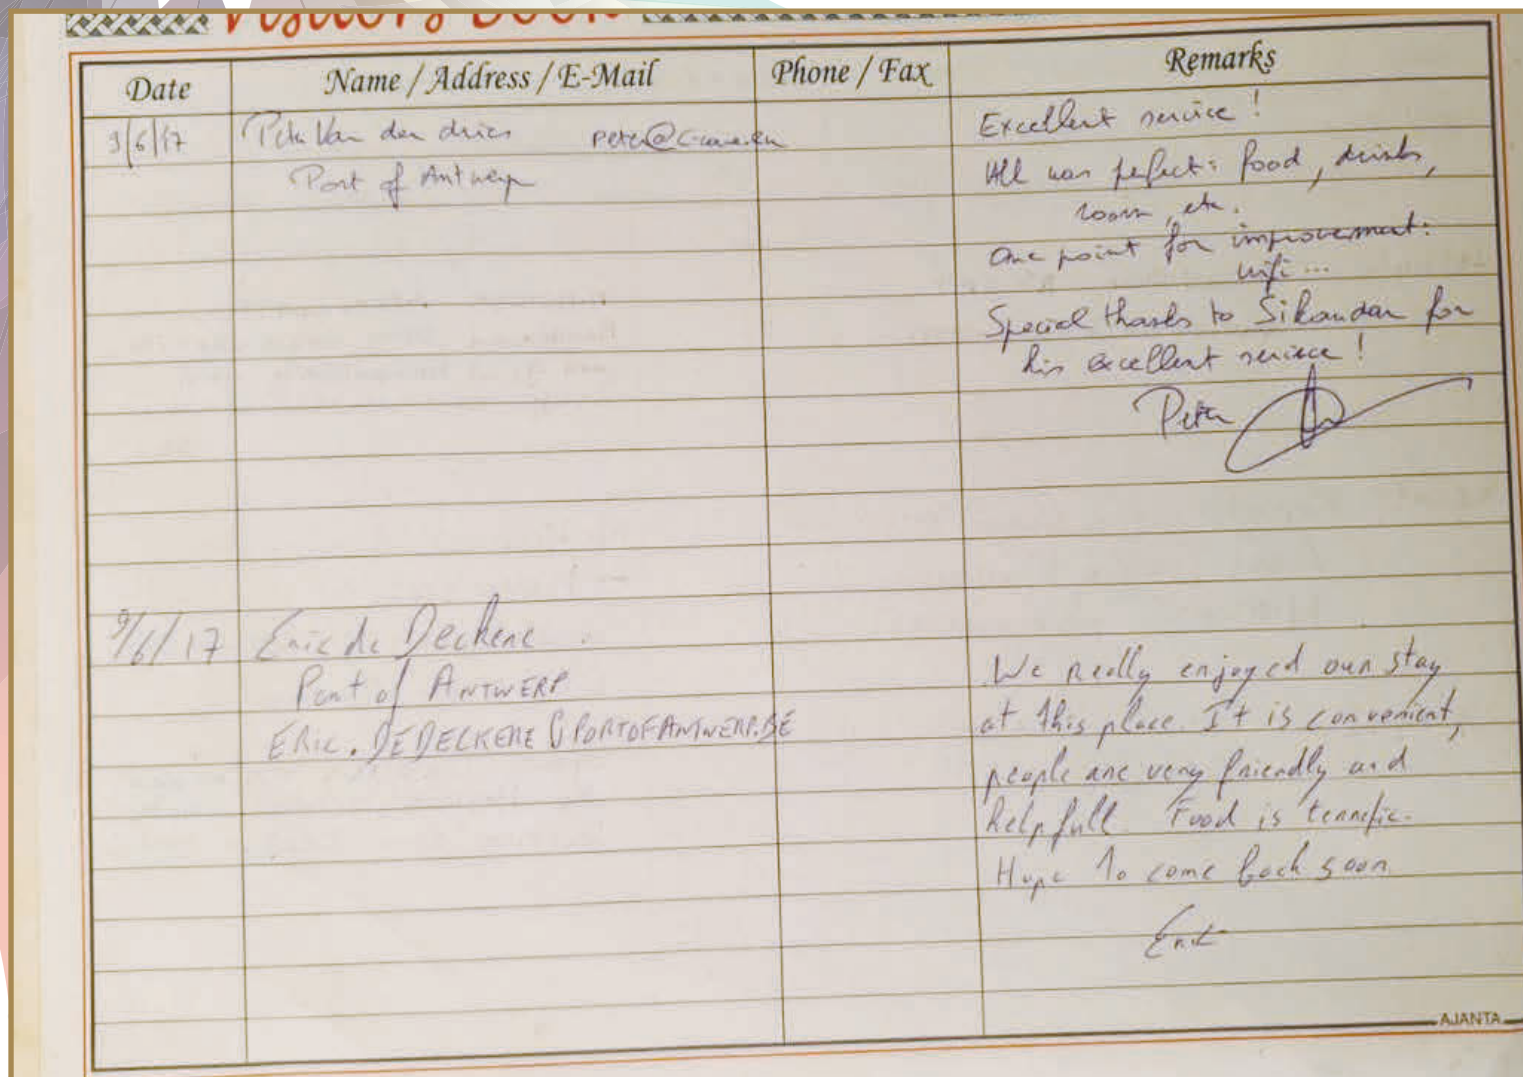 Visitors Book
Date
Name / Address / E-Mail
Phone / Fax
Remarks
9/6/17
Peter Van den dries
Port of Antwerp
Excellent service !
All was perfect : food, drinks,
room, etc.
One point for improvement :
wifi ...
Special thanks to Sikandar for
his excellent service !
Peter
9/6/17
Eric de Deckere
Port of ANTWERP
ERIC.DEDECKERE@PORTOFANTWERP.BE
We really enjoyed our stay
at this place. It is convenient,
people are very friendly and
helpfull. Food is terrefic.
Hope to come back soon
Eric
AJANTA